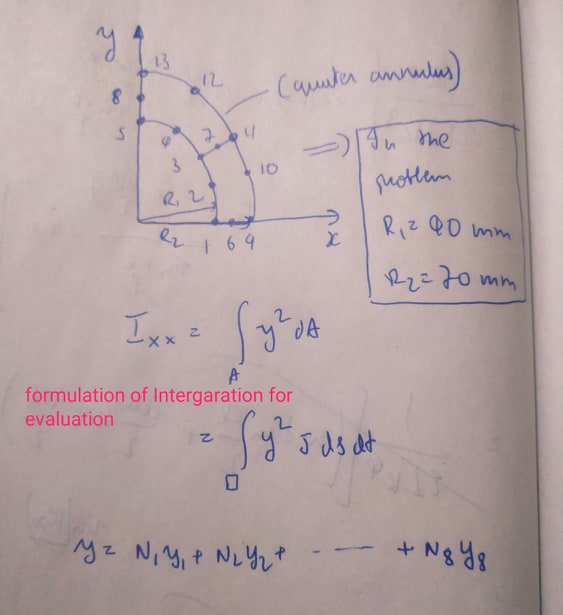 y
13
12
(quater annulus)
8
5
4
7
11
3
10
R1 2
R2 1 6 9 x
=> In the
problem
R1 = 40 mm
R2 = 70 mm
Ixx = ∫A y² dA
formulation of Intergaration for
evaluation
= ∫□ y² J ds dt
y = N1y1 + N2y2 + - - — + N8y8